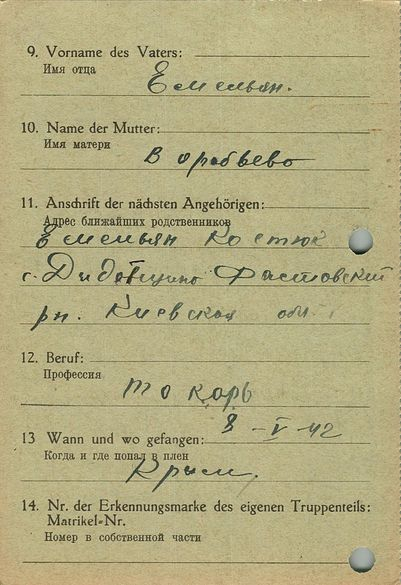 9. Vorname des Vaters:
Имя отца
Емельян.
10. Name der Mutter:
Имя матери
Воробьево
11. Anschrift der nächsten Angehörigen:
Адрес ближайших родственников
Емельян Костюк
с. Фастовский
рн. Киевская обл
12. Beruf:
Профессия
токарь
8-V-42
13 Wann und wo gefangen:
Когда и где попал в плен
Крым.
14. Nr. der Erkennungsmarke des eigenen Truppenteils:
Matrikel=Nr.
Номер в собственной части